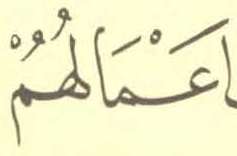 اعْمَالُهُمْ